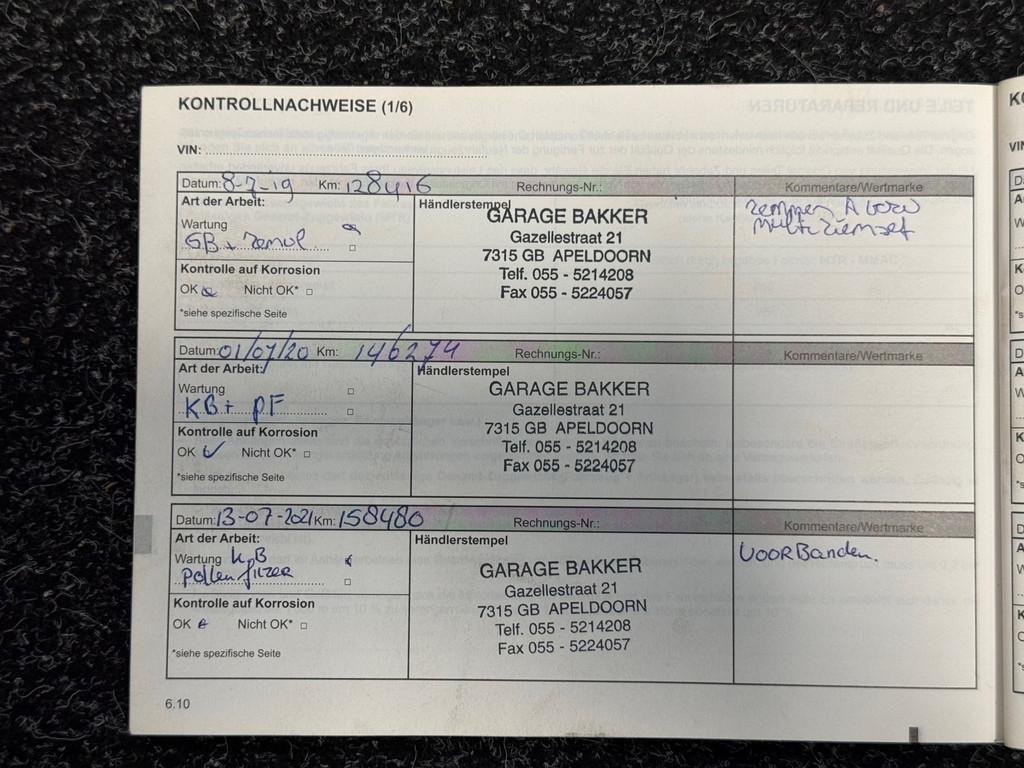 KONTROLLNACHWEISE (1/6)
VIN:
Datum: 8-7-19 Km: 128416 Rechnungs-Nr.: Kommentare/Wertmarke
Art der Arbeit:
Wartung
GB +
Kontrolle auf Korrosion
OK Nicht OK*
*siehe spezifische Seite
Händlerstempel
GARAGE BAKKER
Gazellestraat 21
7315 GB APELDOORN
Telf. 055 - 5214208
Fax 055 - 5224057
remmen A
multiriemset
Datum: 01/07/20 Km: 146274 Rechnungs-Nr.: Kommentare/Wertmarke
Art der Arbeit:
Wartung
KB + PF
Kontrolle auf Korrosion
OK Nicht OK*
*siehe spezifische Seite
Händlerstempel
GARAGE BAKKER
Gazellestraat 21
7315 GB APELDOORN
Telf. 055 - 5214208
Fax 055 - 5224057
Datum: 13-07-2021 Km: 158480 Rechnungs-Nr.: Kommentare/Wertmarke
Art der Arbeit:
Wartung KB
pollenfilter
Kontrolle auf Korrosion
OK Nicht OK*
*siehe spezifische Seite
Händlerstempel
GARAGE BAKKER
Gazellestraat 21
7315 GB APELDOORN
Telf. 055 - 5214208
Fax 055 - 5224057
VOORBanden.
6.10